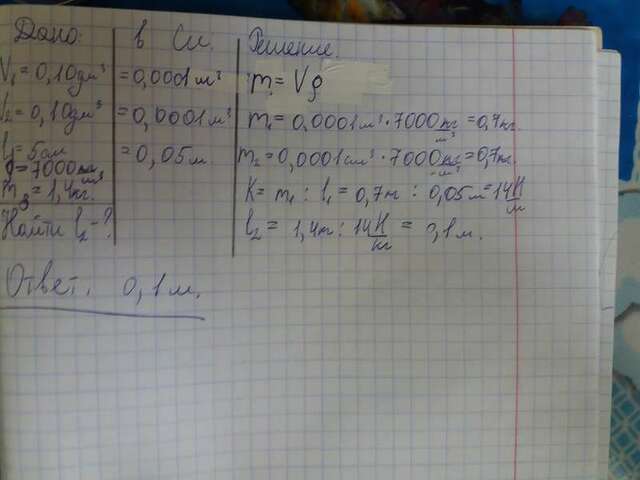 Дано:
V₁ = 0,10дм³
V₂ = 0,10дм³
l₁ = 5см
ρ = 7000 кг/м³
m₃ = 1,4кг.
Найти l₂ - ?
в Си.
= 0,0001м³
= 0,0001м³
= 0,05м
Решение.
m = Vρ
m₁ = 0,0001м³ · 7000 кг/м³ = 0,7кг.
m₂ = 0,0001см³ · 7000 кг/м³ = 0,7кг.
K = m₁ : l₁ = 0,7кг : 0,05м = 14 Н/м
l₂ = 1,4кг : 14 Н/кг = 0,1м.
Ответ. 0,1м.